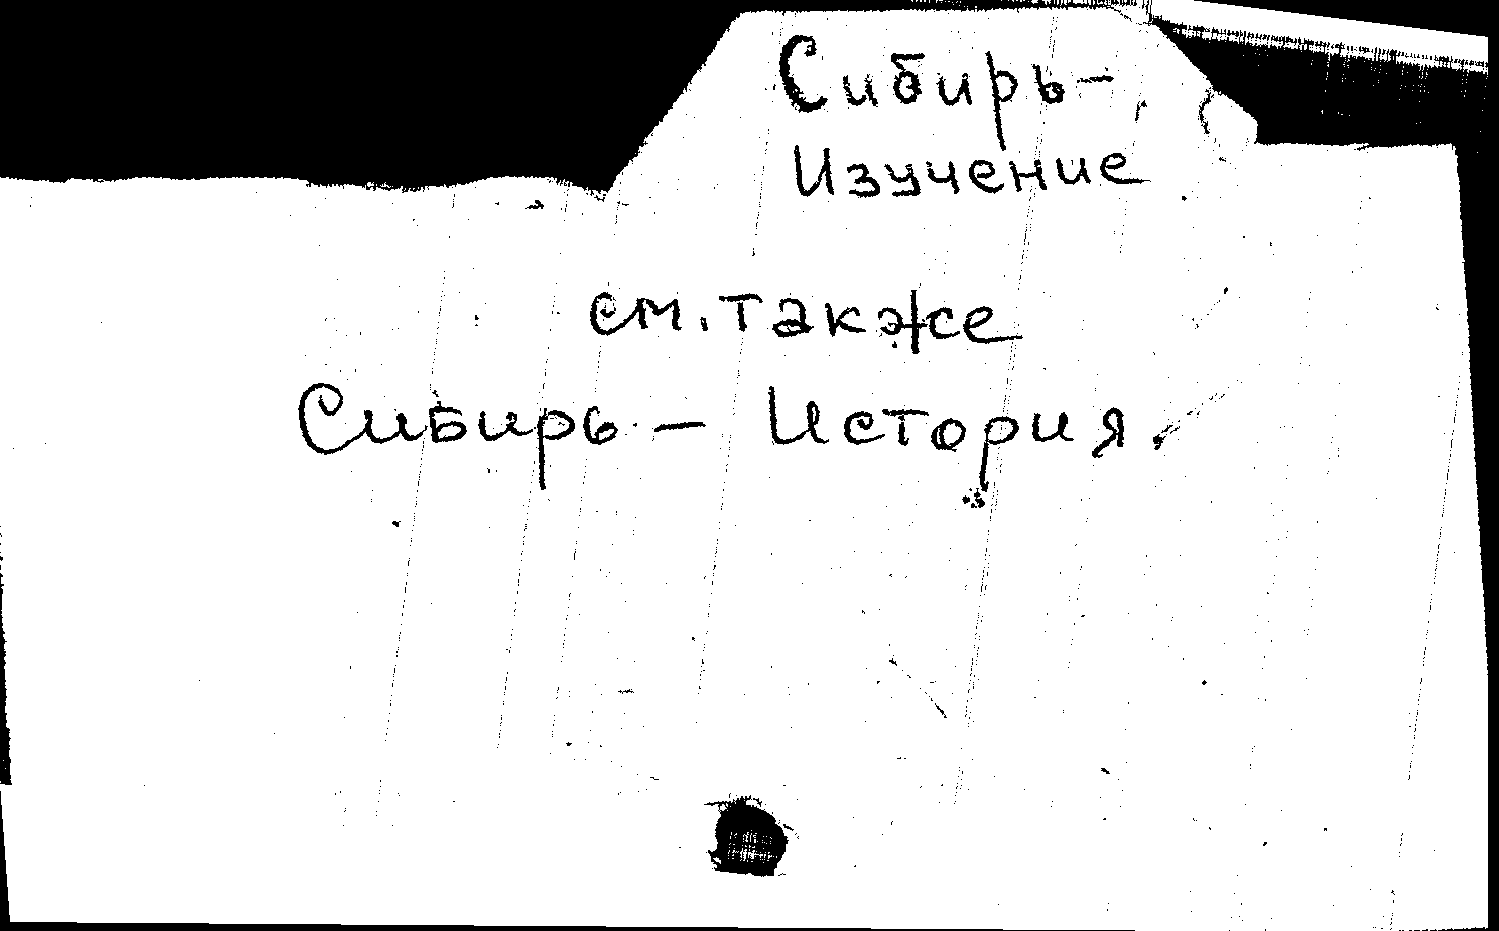 Сибирь –
Изучение
см. также
Сибирь – История